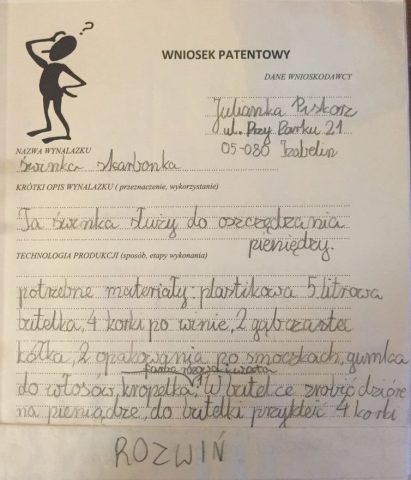 ?
WNIOSEK PATENTOWY
DANE WNIOSKODAWCY
Julianka Piskorz
ul. Przy Parku 21
05-080 Izabelin
NAZWA WYNALAZKU
Świnka skarbonka
KRÓTKI OPIS WYNALAZKU ( przeznaczenie, wykorzystanie)
Ta świnka służy do oszczędzania
pieniędzy.
TECHNOLOGIA PRODUKCJI (sposób, etapy wykonania)
potrzebne materiały: plastikowa 5 litrowa
butelka, 4 korki po winie, 2 gąbczaste
kółka, 2 opakowania po smoczkach, gumka
farba różowa i
do włosów, kropelka. W butelce zrobić dziórę
na pieniądze, do butelki przykleić 4 korki
ROZWIŃ